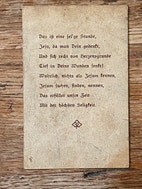 Das ist eine sel'ge Stunde,
Jesu, da man Dein gedenkt,
Und sich recht von Herzensgrunde
Tief in Deine Wunden senkt!
Wahrlich, nichts als Jesum kennen,
Jesum suchen, finden, nennen,
Das erfüllet unsre Zeit
Mit der höchsten Seligkeit.